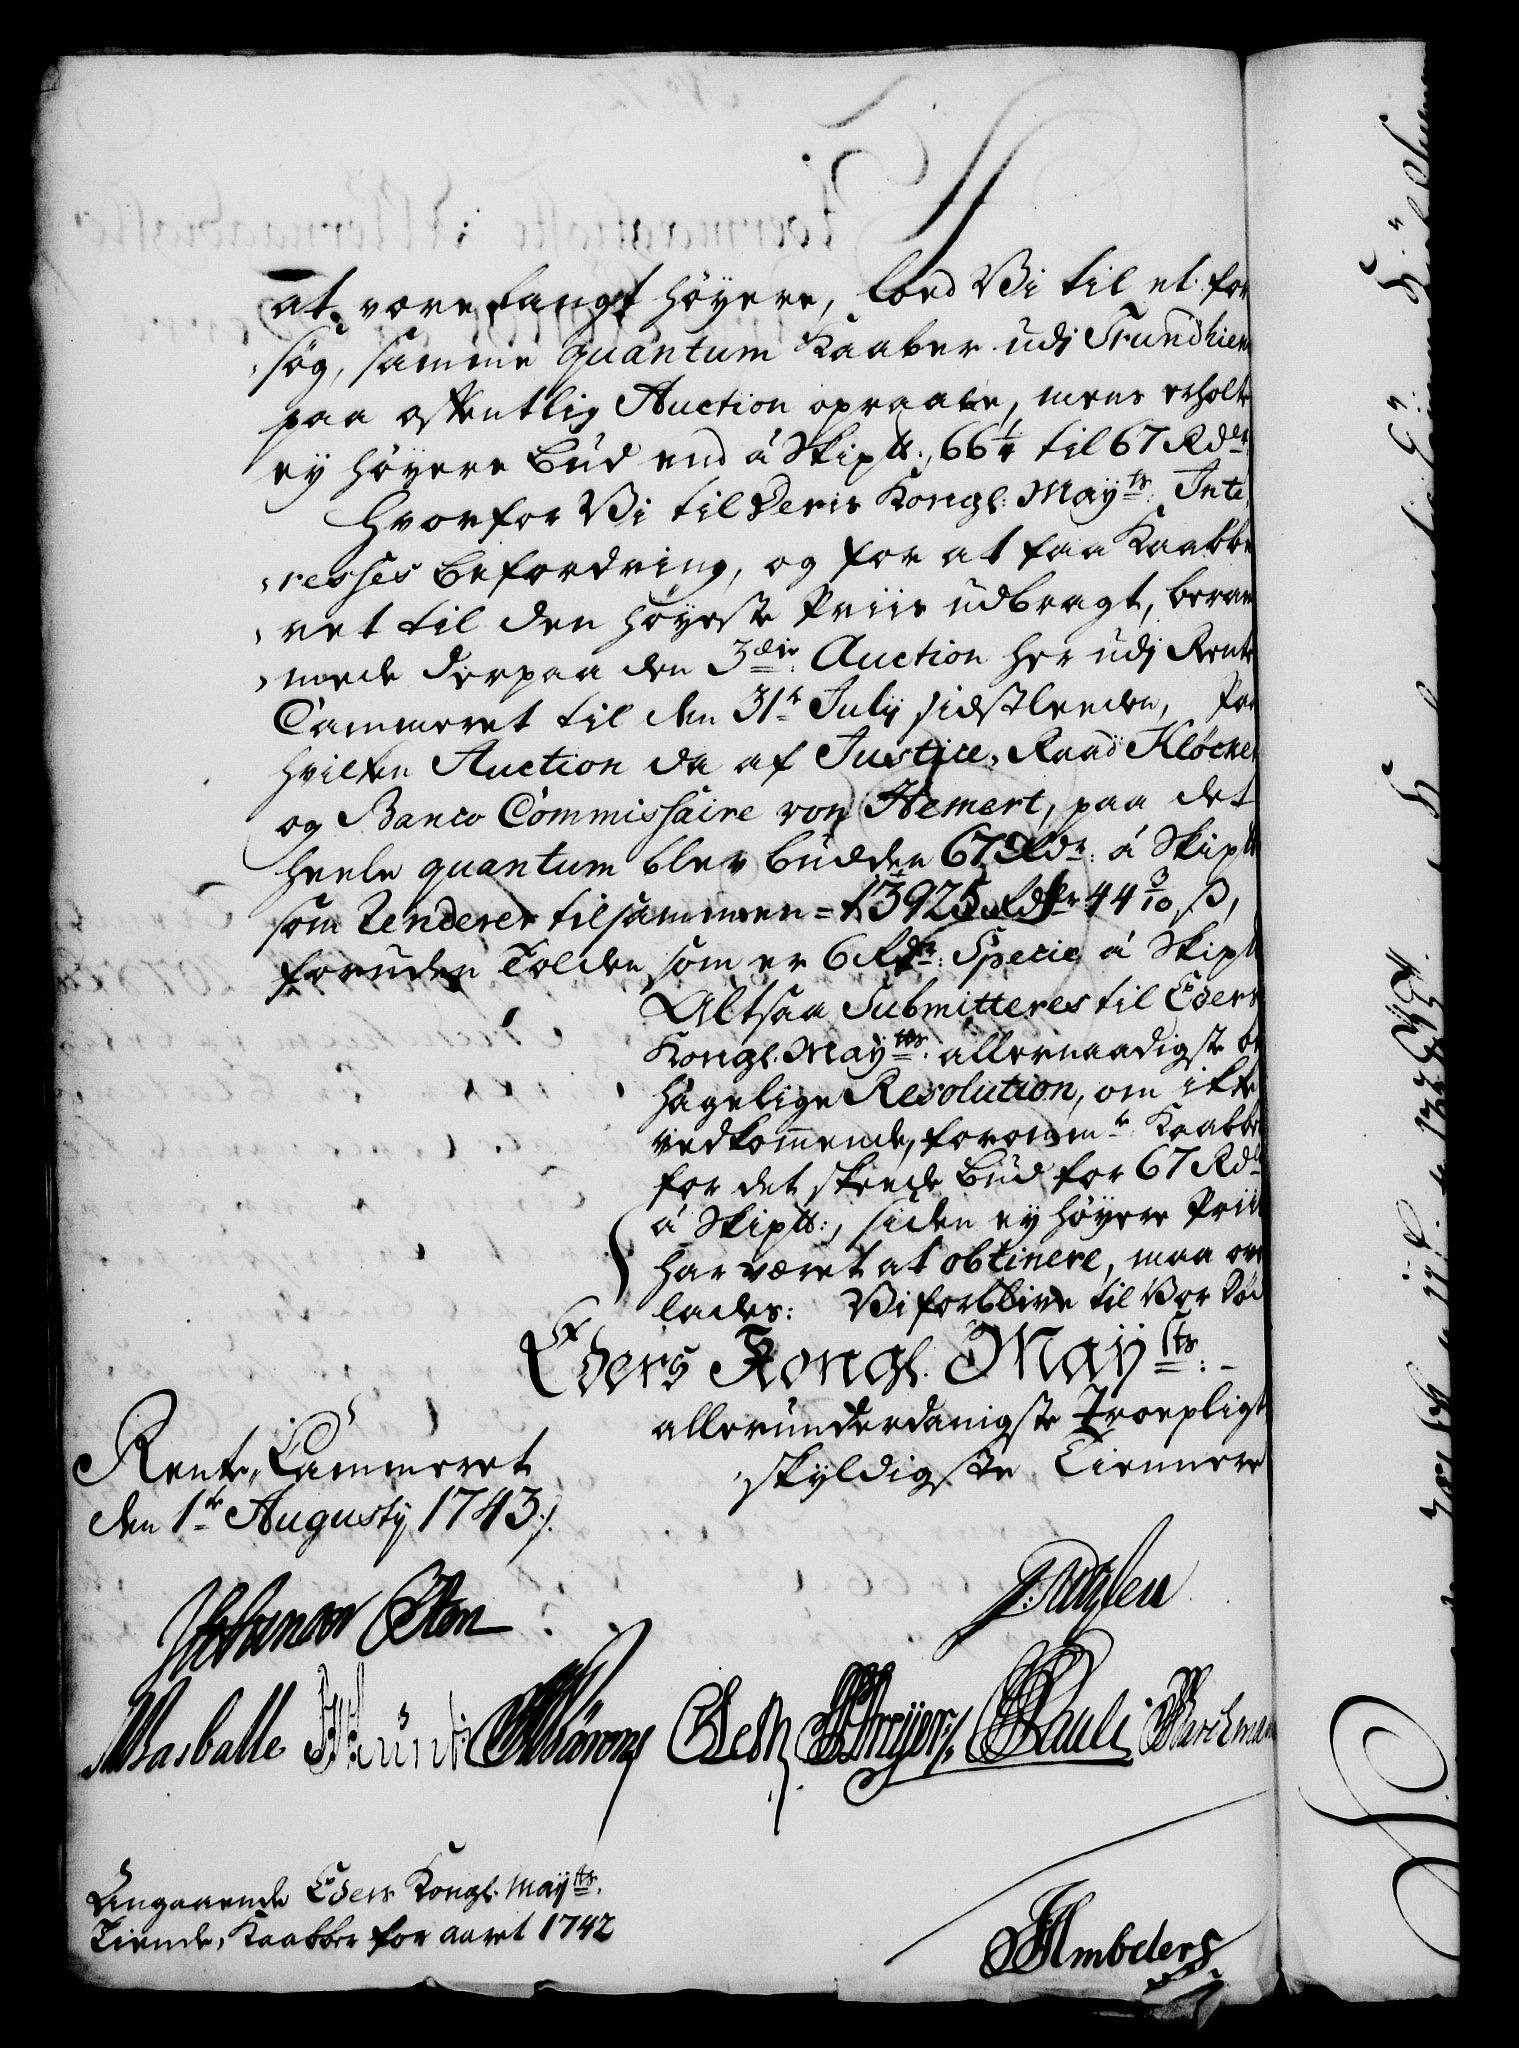 at være langt høyere, loed Vi til et for
søg, samme quantum Kaaber udj Trundhiem
paa offentlig Auction opraabe, mens erholte
ey høyere Bud end á Skip℔: 66¼ til 67 Rdlr:
Hvorfor Vi til Deris Kongl: Mayts: Inte,
,resses Befordring, og for at faa Kaabbe
,ret til den høyeste Priis udbragt, beram
,mede derpaa den 3die: Auction her udj Rente
Cammeret til den 31te July sidstleeden, Paa
hvilken Auction da af Justice, Raad Kløcker
og Banco Commissaire von Hemert, paa det
heele quantum blev budden 67 Rdr: á Skip℔
som Renderer tilsammen = 13925 Rdlr 44 3/10 ß,
foruden Tolden som er 6 Rdr: Specie á Skip℔
Altsaa Submitteres til Eders
Kongl. Mayts: allernaadigste be
hagelige Resolution, om ikke
vedkommende, foromme Kaabber
for det skeede bud for 67 Rdlr
á Skip℔:, siden ey høyere Priis
har været at obtinere, maa over
lades: Vi forblive til Vor Død
Eders Kongl. Mayts:
allerunderdanigste Troepligt
skyldigste Tiennere
Rente,Cammeret
den 1te Augusty 1743./.
Oeth Pauli
Angaaende Eders Kongl. Mayts.
Tiende, Kaabber for aaret 1742